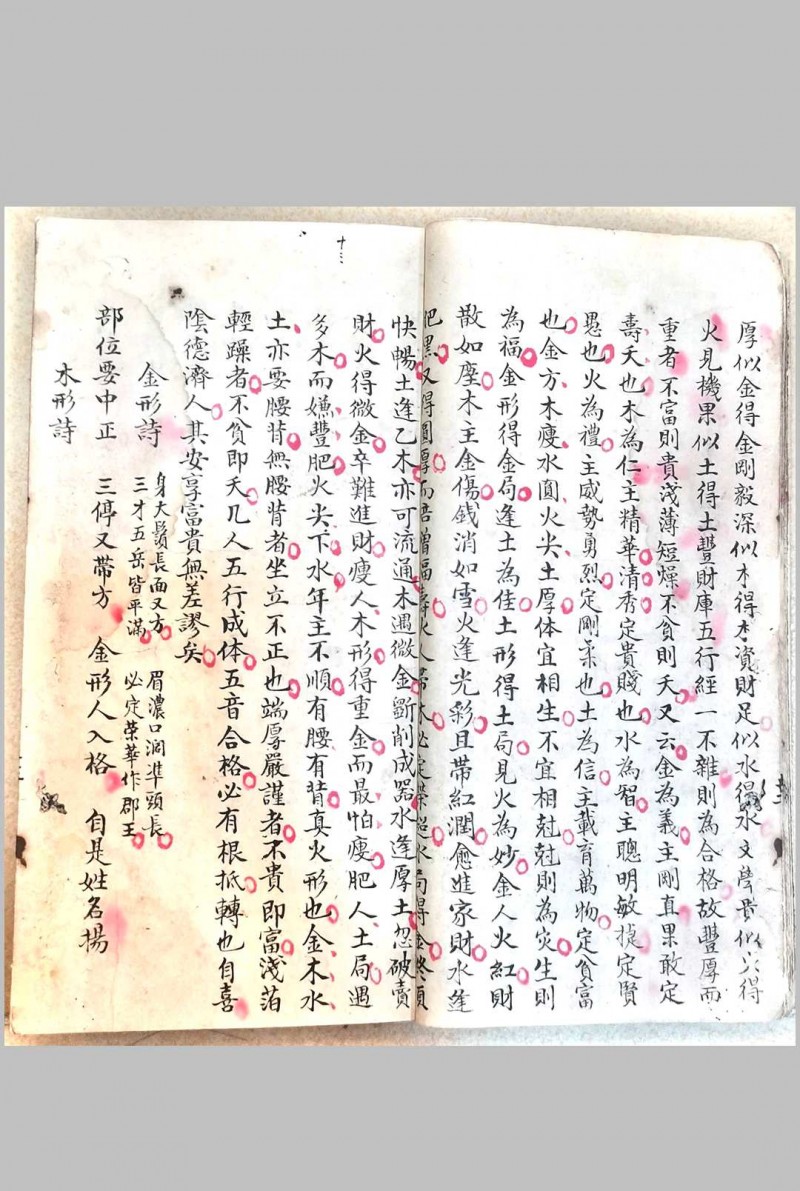 厚似金得金剛毅深似木得木資財足似水得水文學貴似火得
火見機果似土得土豐財庫五行經一不雜則為合格故豐厚而
重者不富則貴淺薄短燥不貧則夭又云金為義主剛直果敢定
壽夭也木為仁主精華清秀定貴賤也水為智主聰明敏捷定賢
愚也火為禮主威勢勇烈定剛柔也土為信主載育萬物定貧富
也金方木瘦水圓火尖土厚体宜相生不宜相尅尅則為災生則
為福金形得金局逢土為佳土形得土局見火為妙金人火紅財
散如座木主金傷錢消如雪火逢光彩且帶紅潤愈進家財水逢
肥黑又得圓厚而倍增福壽火人帶木必定榮超水局得金終須
快暢土逢乙木亦可流通木遇微金斷削成器水逢厚土忽破賣
財火得微金卒難進財瘦人木形得重金而最怕瘦肥人土局遇
多木而嫌豐肥火尖下水年主不順有腰有背真火形也金木水
土亦要腰背無腰背者坐立不正也端厚嚴謹者不貴即富淺泊
輕躁者不貧即夭凡人五行成体五音合格必有根抵轉也自喜
陰德濟人其安享富貴無差謬矣
十三
金形詩
身大鬚長面又方 眉濃口濶準頭長
三才五岳皆平滿 必定荣華作郡王
部位要中正 三停又帶方 金形人入格 自是姓名揚
木形詩